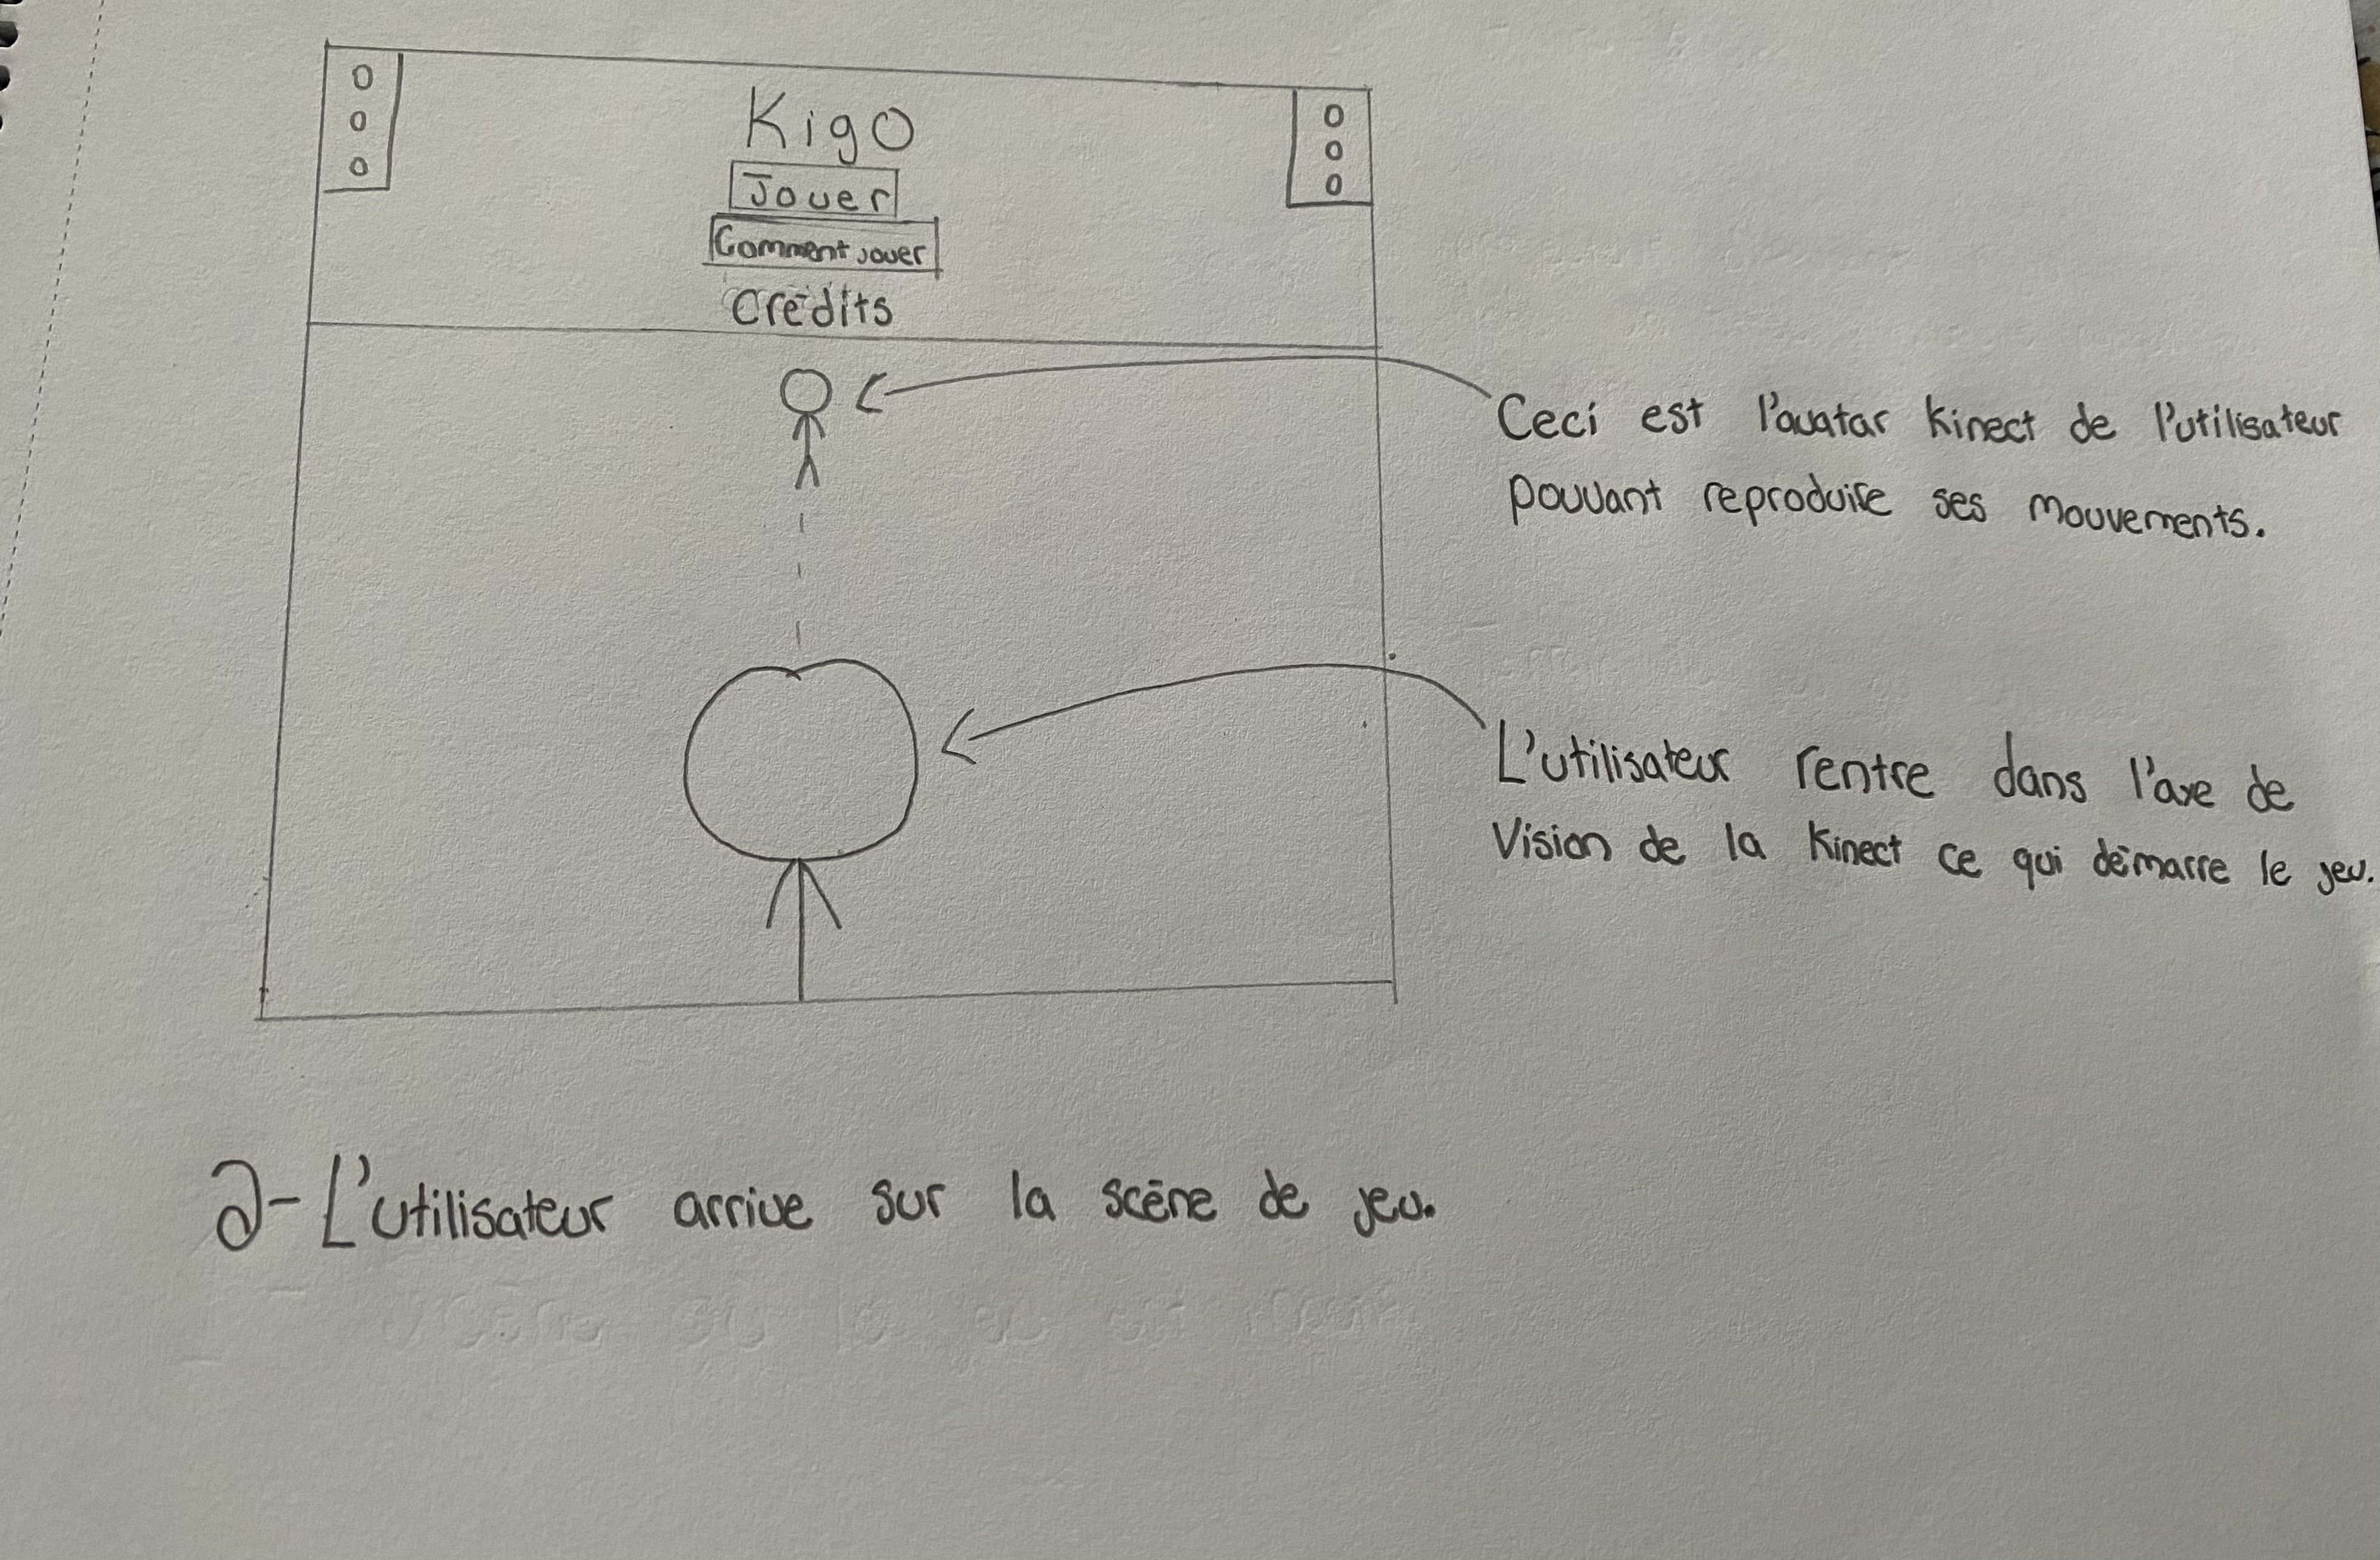 Kigo
Jouer
Comment jouer
Crédits
Ceci est l'avatar Kinect de l'utilisateur
pouvant reproduire ses mouvements.
L'utilisateur rentre dans l'axe de
Vision de la Kinect ce qui démarre le jeu.
2- L'utilisateur arrive sur la scène de jeu.